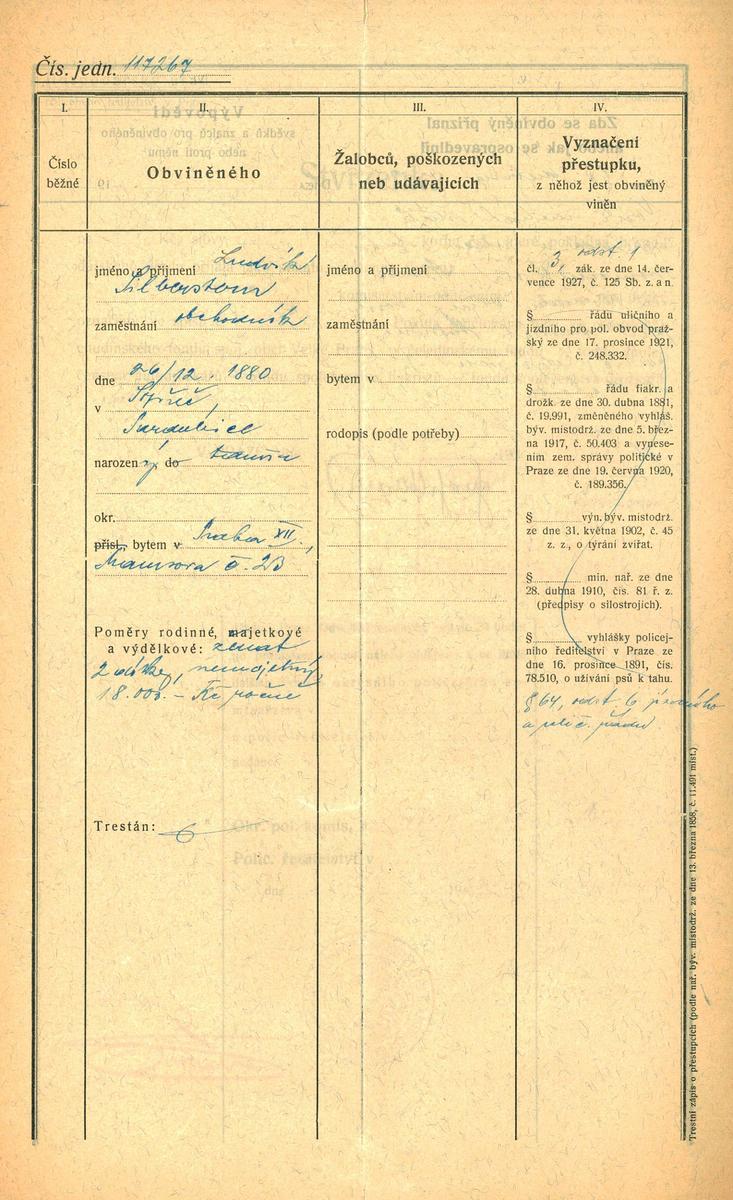 Čís. jedn. 117267
I.
Číslo
běžné
II.
Obviněného
III.
Žalobců, poškozených
neb udávajících
IV.
Vyznačení
přestupku,
z něhož jest obviněný
vinĕn
jméno a příjmení Ludvík
zaměstnání obchodník
dne 26/12. 1880
v
Pardubice
narozen ý do
okr.
přísl. bytem v Praha XII.,
č. 23
Poměry rodinné, majetkové
a výdělkové: ženat
2 dítky, nemajetný
18.000.- Kč ročně
Trestán:
jméno a příjmení
zaměstnání
bytem v
rodopis (podle potřeby)
čl. 3, odst. 1 zák. ze dne 14. čer-
vence 1927, č. 125 Sb. z. a n.
§ řádu uličního a
jízdního pro pol. obvod praž-
ský ze dne 17. prosince 1921,
č. 248.332.
§ řádu fiakr. a
drožk. ze dne 30. dubna 1881,
č. 19.991, změněného vyhláš.
býv. místodrž. ze dne 5. břez-
na 1917, č. 50.403 a vynese-
ním zem. správy politické v
Praze ze dne 19. června 1920,
č. 189.356.
§ výn. býv. místodrž.
ze dne 31. května 1902, č. 45
z. z., o týrání zvířat.
§ min. nař. ze dne
28. dubna 1910, čís. 81 ř. z.
(předpisy o silostrojích).
§ vyhlášky policej-
ního ředitelství v Praze ze
dne 16. prosince 1891, čís.
78.510, o užívání psů k tahu.
§ 64, odst. 6 jízdního
a ulič. řádu
Trestní zápis o přestupcích (podle nař. býv. místodrž. ze dne 13. března 1858, č. 11.491 míst.)